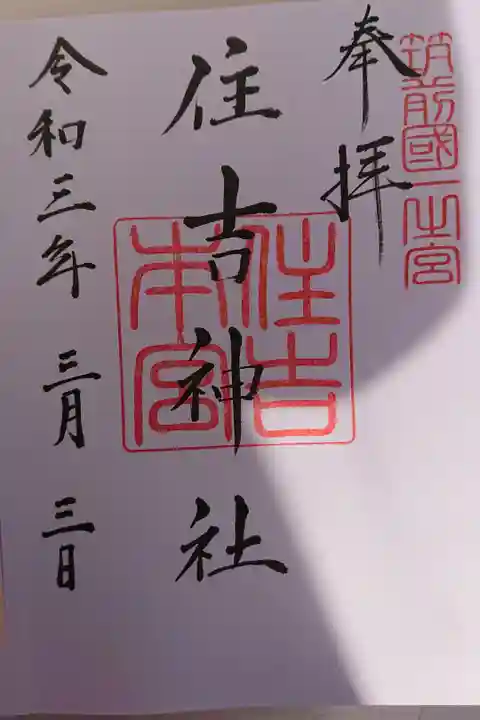 筑前國一之宮
奉拝
住吉神社
住吉本宮
令和三年 三月 三日